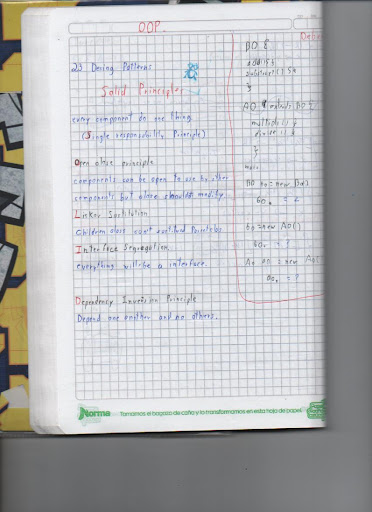 OOP.
23 Desing Patterns
Solid Principles
every component do one thing
(Single responsability Principle)
Open close principle
components can be open to use by other
components but close modify
Liskov Sustitution
Children class can't sustitud
Interface Segregation.
everything will be a interface.
Dependency Inversion Principle
Depend one another and no others.
BO {
add() {}
substract() {}
}
AO extends BO {
multiply() {}
}
BO bo = new BO()
bo. = 2
bo = new AO()
bo. = ?
Ao ao = new
ao. = ?
Norma
Tomamos el bagazo de caña y lo transformamos en esta hoja de papel.